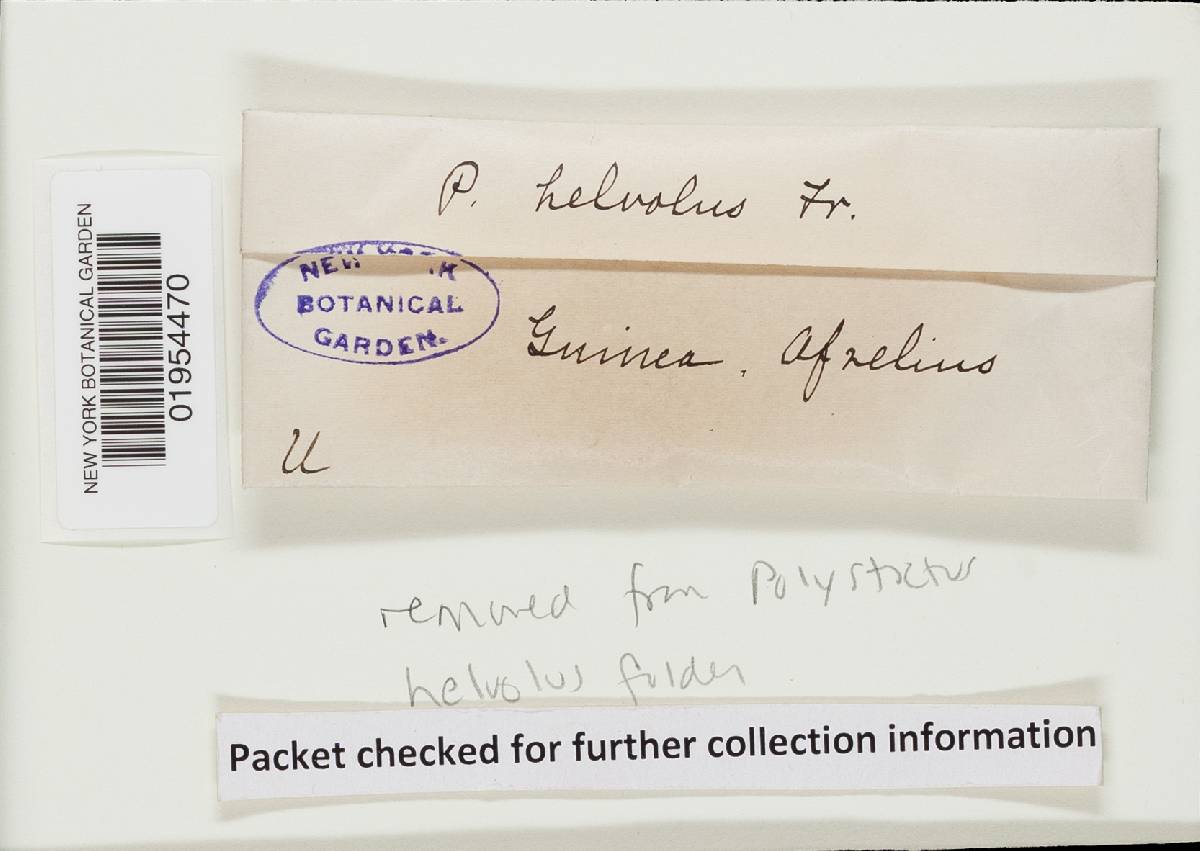 P. helvolus Fr.
NEW YORK
BOTANICAL
GARDEN.
Guinea, Afzelius
U
NEW YORK BOTANICAL GARDEN
01954470
removed from Polystictus
helvolus folder
Packet checked for further collection information